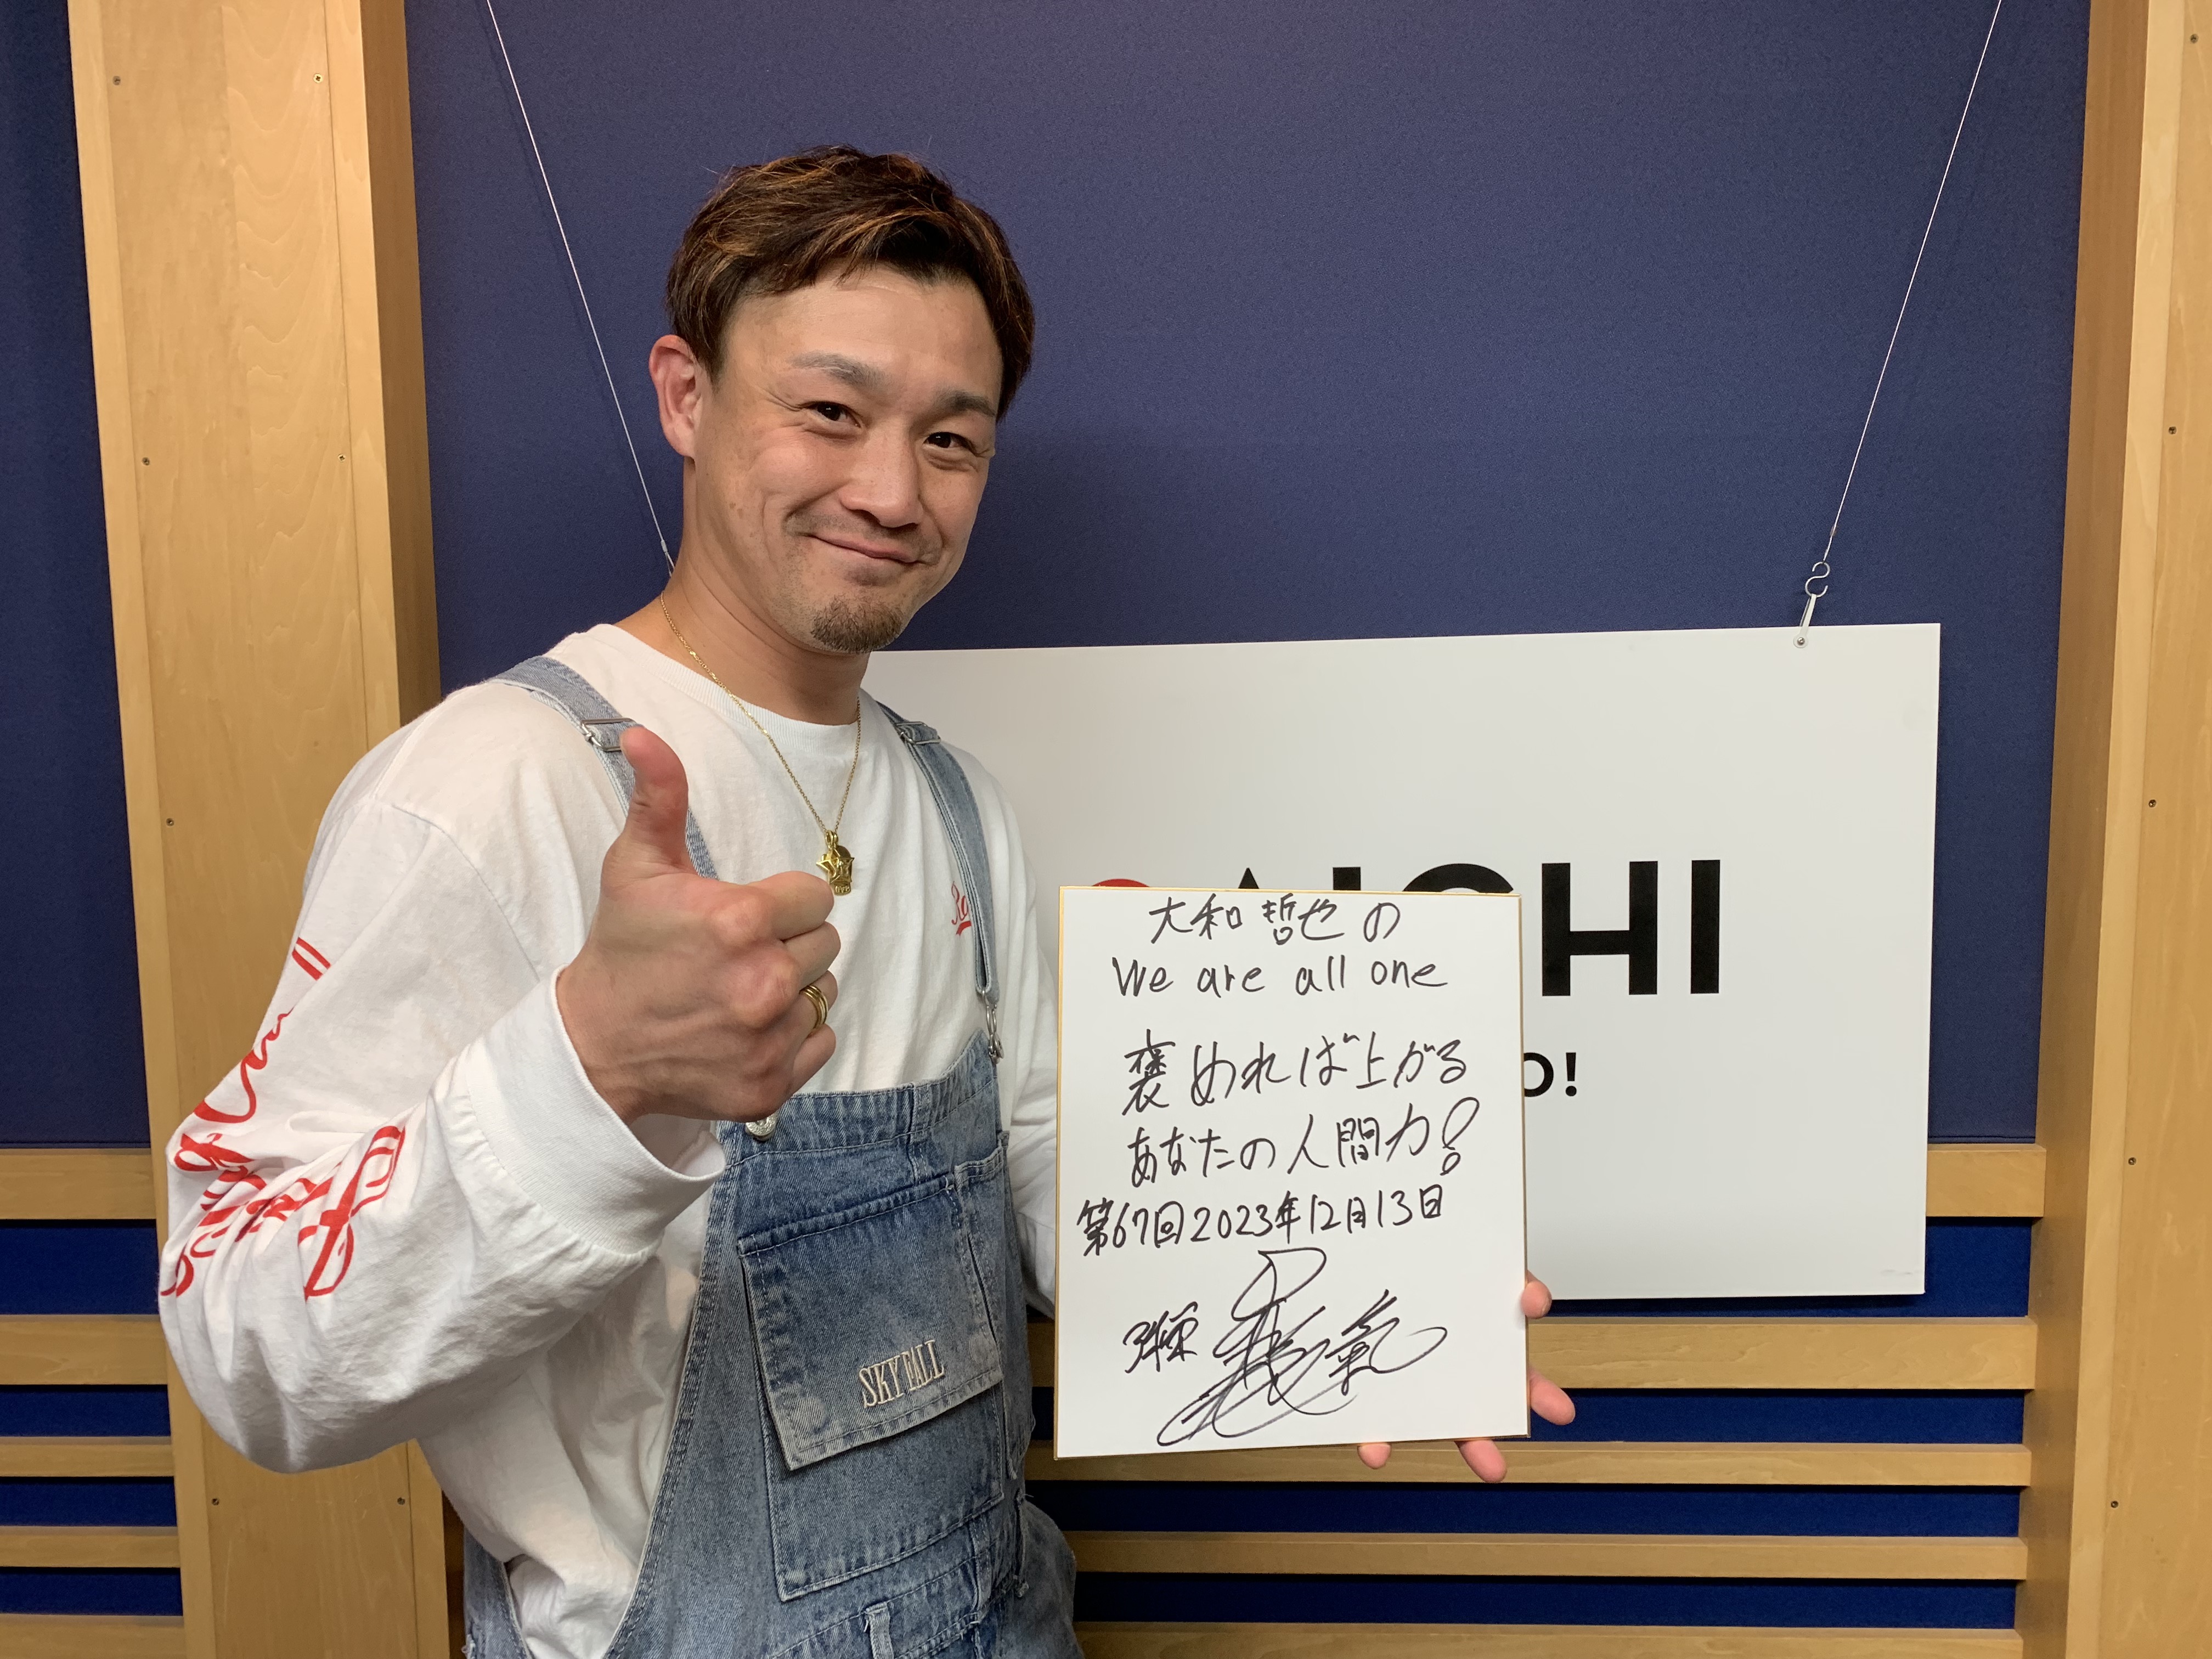 大和哲也の
We are all one
褒めれば上がる
あなたの人間力!
第67回2023年12月13日
AICHI
O!
SKYFALL